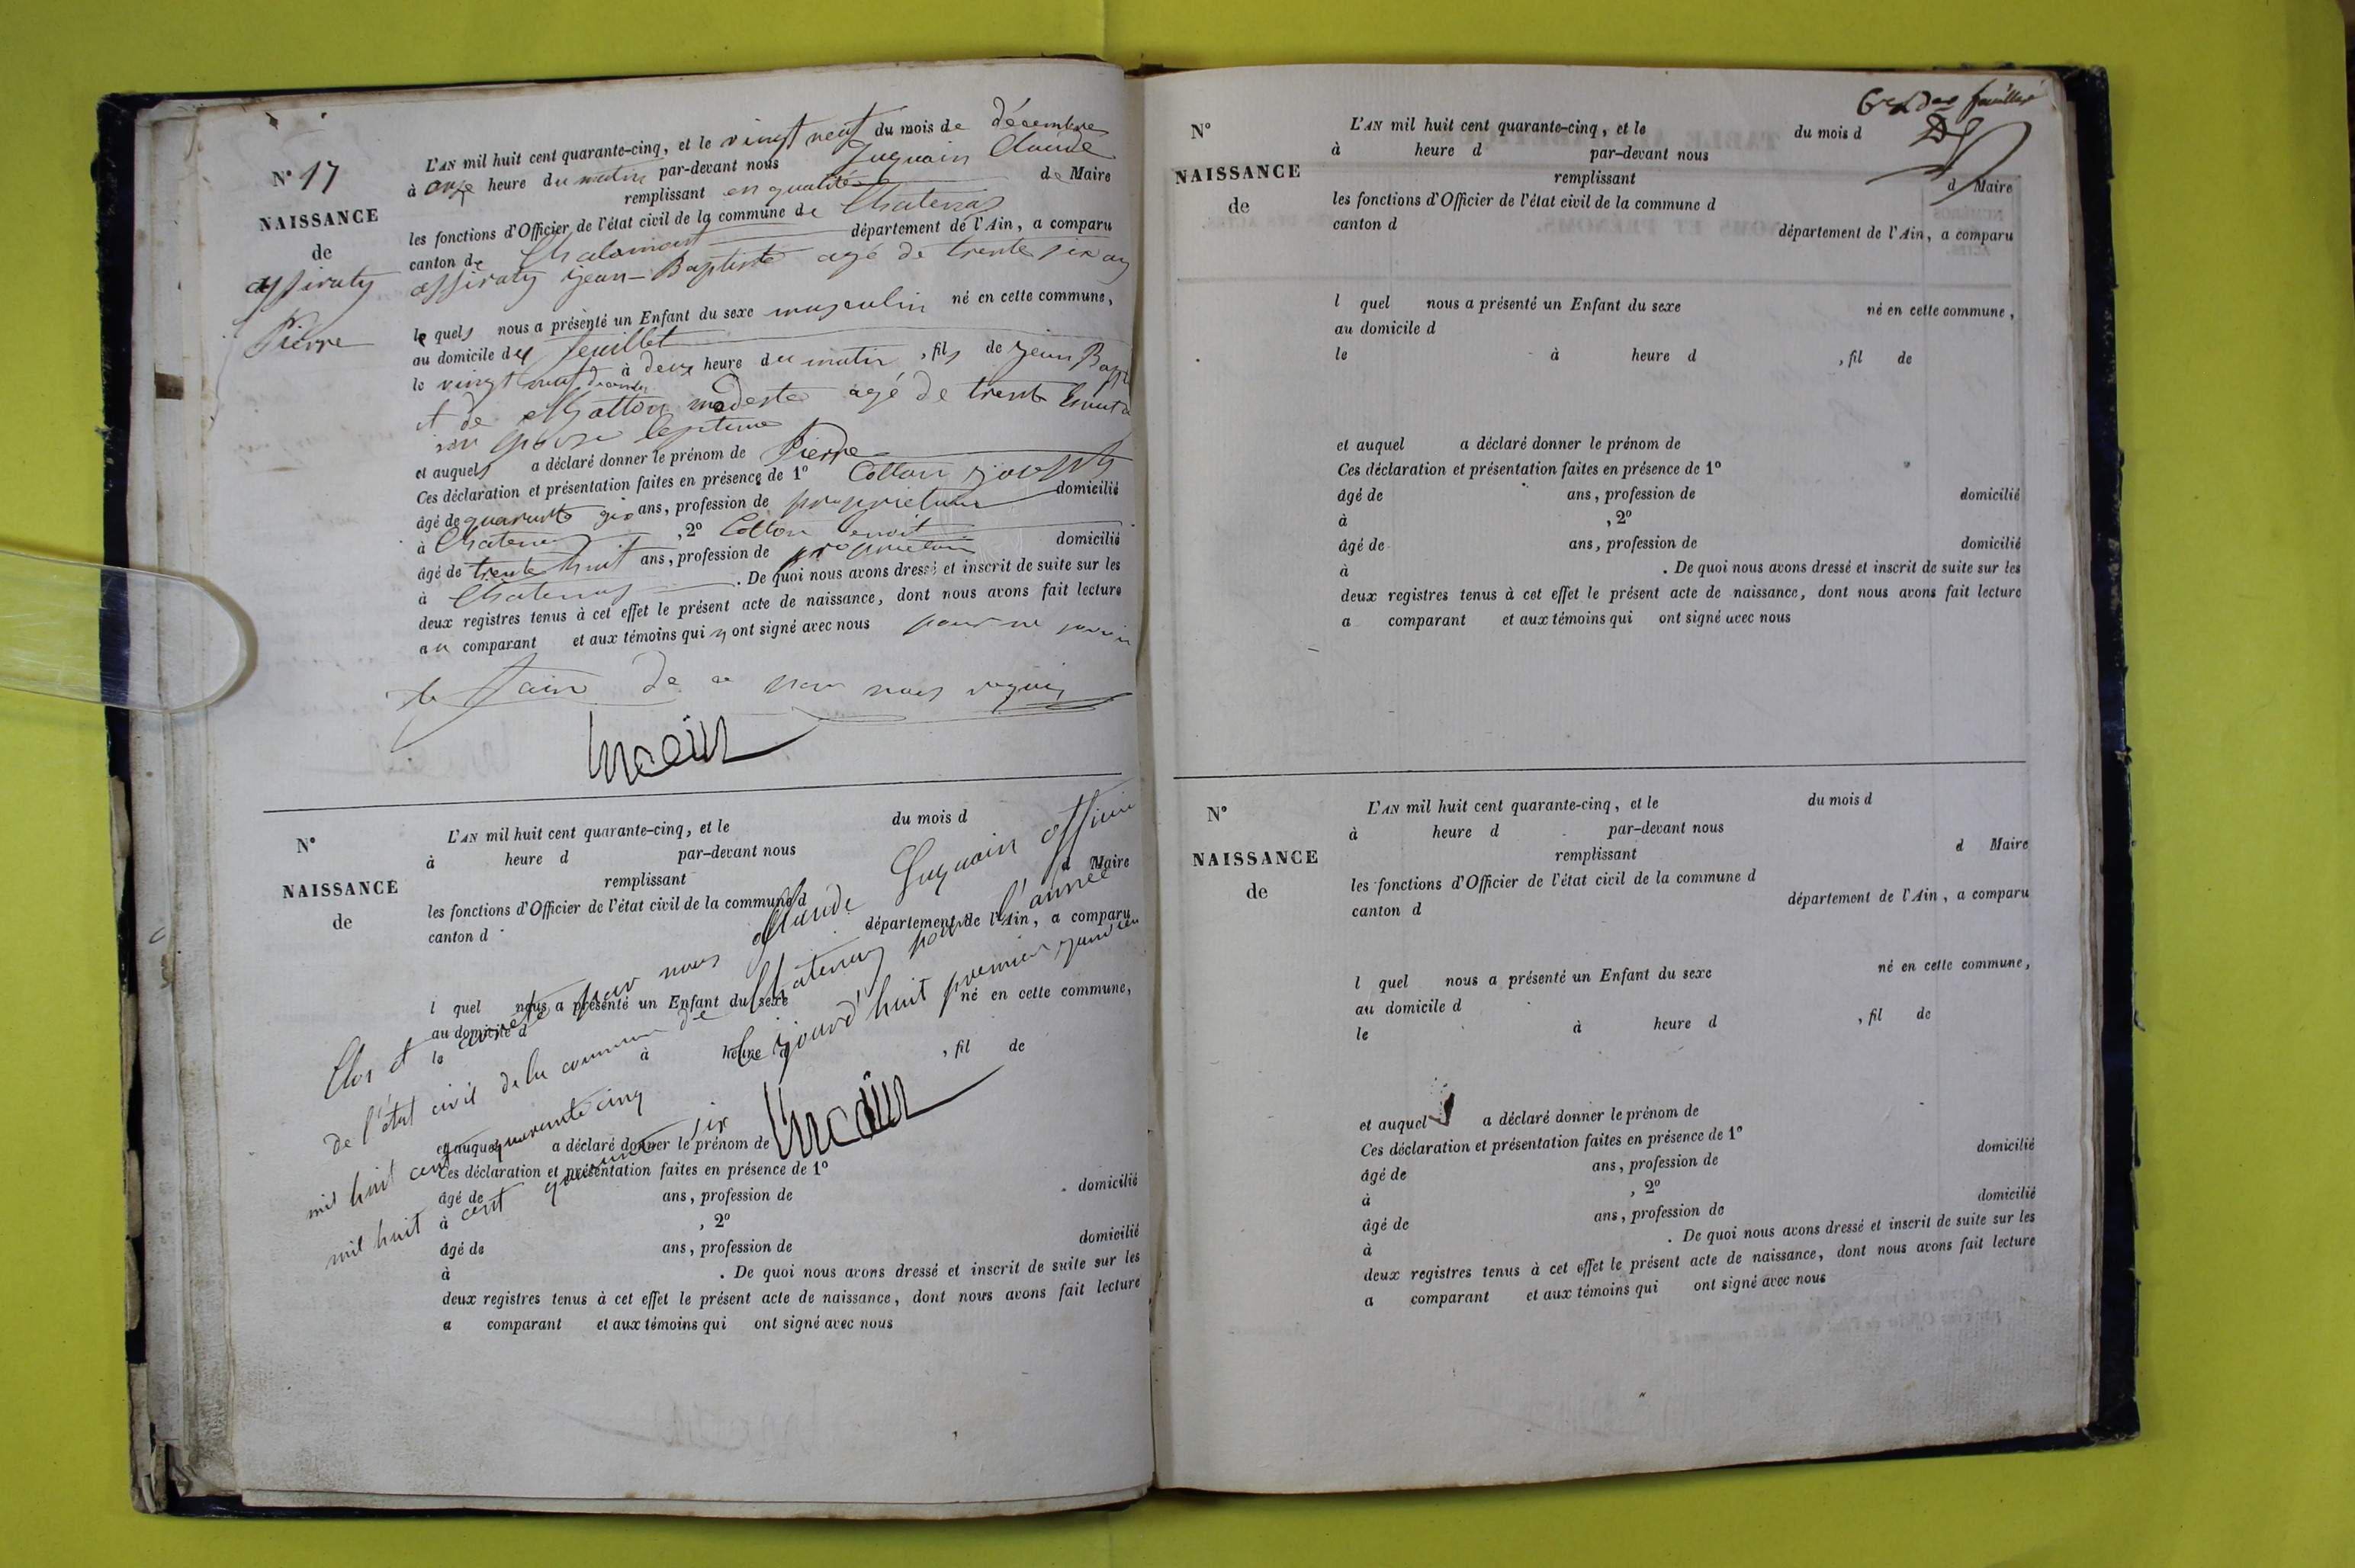 N° 17
NAISSANCE
de
Pierre
L'AN mil huit cent quarante-cinq, et le vingt neuf du mois de décembre
à onze heure du matin par-devant nous Juguain Claude
remplissant en qualité de Maire
les fonctions d'Officier de l'état civil de la commune de Chatenay
canton de Chalamont département de l'Ain, a comparu
Jean-Baptiste agé de trente six ans
le quel nous a présenté un Enfant du sexe masculin né en cette commune,
au domicile de feuillet
le vingt neuf décembre à deux heure du matin, fils de jean Bapt
et de modeste agé de trente
son épouse legitime
et auquel a déclaré donner le prénom de Pierre
Ces déclaration et présentation faites en présence de 1° Cotton joseph
âgé de quarante six ans, profession de proprietaire domicilié
à Chatenay, 2° Cotton benoit
âgé de trente huit ans, profession de proprietaire domicilié
à Chatenay. De quoi nous avons dressé et inscrit de suite sur les
deux registres tenus à cet effet le présent acte de naissance, dont nous avons fait lecture
au comparant et aux témoins qui n ont signé avec nous pour ne savoir
le faire de ce nous requis
N°
NAISSANCE
de
L'AN mil huit cent quarante-cinq, et le du mois d
à heure d par-devant nous
remplissant d Maire
les fonctions d'Officier de l'état civil de la commune d
canton d département de l'Ain, a comparu
l quel nous a présenté un Enfant du sexe né en cette commune,
au domicile d
le à heure d , fil de
et auquel a déclaré donner le prénom de
Ces déclaration et présentation faites en présence de 1°
âgé de ans, profession de domicilié
à , 2°
âgé de ans, profession de domicilié
à . De quoi nous avons dressé et inscrit de suite sur les
deux registres tenus à cet effet le présent acte de naissance, dont nous avons fait lecture
a comparant et aux témoins qui ont signé avec nous
Clos et arrêté par nous Claude Juguain officier
de l'état civil de la commune de Chatenay pour l'année
mil huit cent quarante cinq Ce jourd'huit premier janvier
mil huit cent quarante six
feuillet
N°
NAISSANCE
de
L'AN mil huit cent quarante-cinq, et le du mois d
à heure d par-devant nous
remplissant d Maire
les fonctions d'Officier de l'état civil de la commune d
canton d département de l'Ain, a comparu
l quel nous a présenté un Enfant du sexe né en cette commune,
au domicile d
le à heure d , fil de
et auquel a déclaré donner le prénom de
Ces déclaration et présentation faites en présence de 1°
âgé de ans, profession de domicilié
à , 2°
âgé de ans, profession de domicilié
à . De quoi nous avons dressé et inscrit de suite sur les
deux registres tenus à cet effet le présent acte de naissance, dont nous avons fait lecture
a comparant et aux témoins qui ont signé avec nous
N°
NAISSANCE
de
L'AN mil huit cent quarante-cinq, et le du mois d
à heure d par-devant nous
remplissant d Maire
les fonctions d'Officier de l'état civil de la commune d
canton d département de l'Ain, a comparu
l quel nous a présenté un Enfant du sexe né en cette commune,
au domicile d
le à heure d , fil de
et auquel a déclaré donner le prénom de
Ces déclaration et présentation faites en présence de 1°
âgé de ans, profession de domicilié
à , 2°
âgé de ans, profession de domicilié
à . De quoi nous avons dressé et inscrit de suite sur les
deux registres tenus à cet effet le présent acte de naissance, dont nous avons fait lecture
a comparant et aux témoins qui ont signé avec nous